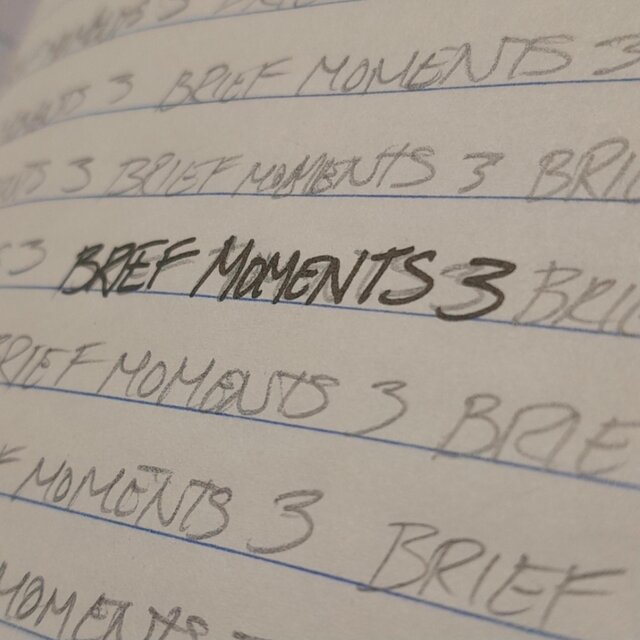 3
3 BRIEF MOMENTS 3
3 BRIEF MOMENTS 3 BRI
3 BRIEF MOMENTS 3 BRI
BRIEF MOMENTS 3 BRIE
MOMENTS 3 BRIEF
MOMENTS